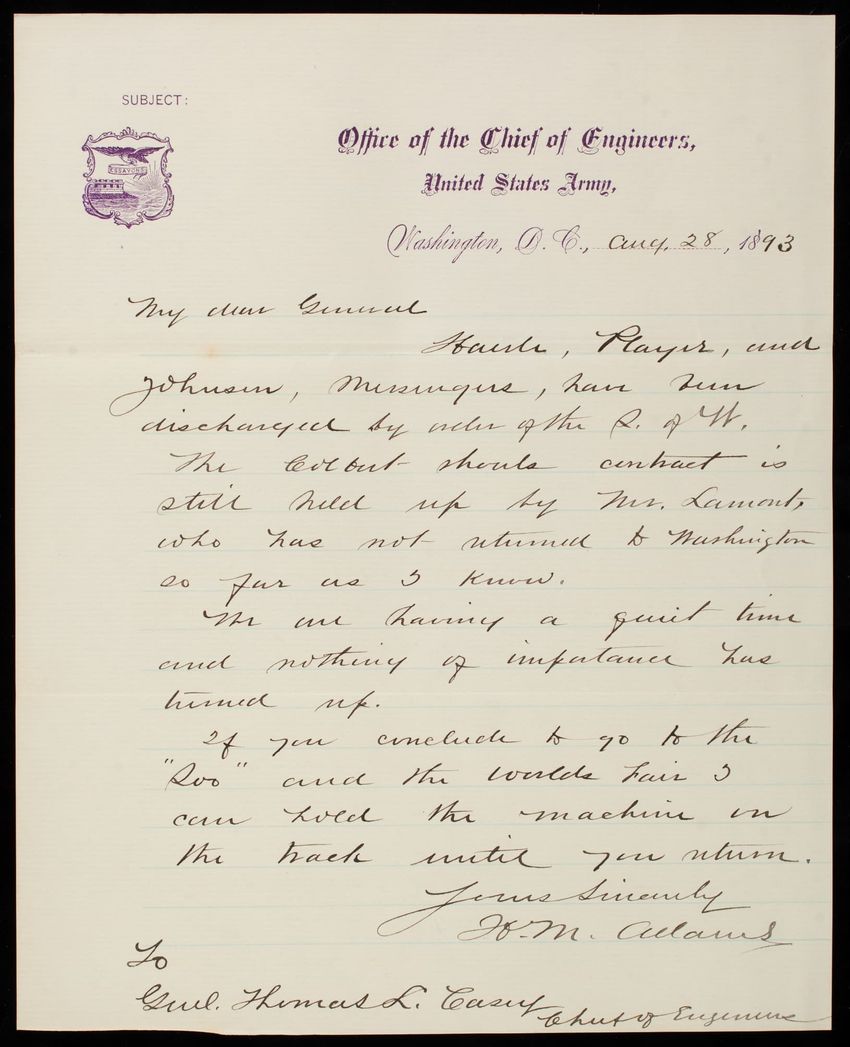 SUBJECT:
ESSAYONS
Office of the Chief of Engineers,
United States Army,
Washington, D. C., Aug. 28, 1893
My dear General
, Player, and
Johnson, Messengers, have been
discharged by order of the S. of W.
The Colbert shoals contract is
still held up by Mr. Lamont,
who has not returned to Washington
so far as I know.
We are having a quiet time
and nothing of importance has
turned up.
If you conclude to go to the
"Soo" and the worlds Fair I
can hold the machine on
the track until you return.
Yours Sincerely
H. M. Adams
To
Genl. Thomas L. Casey
Chief of Engineers